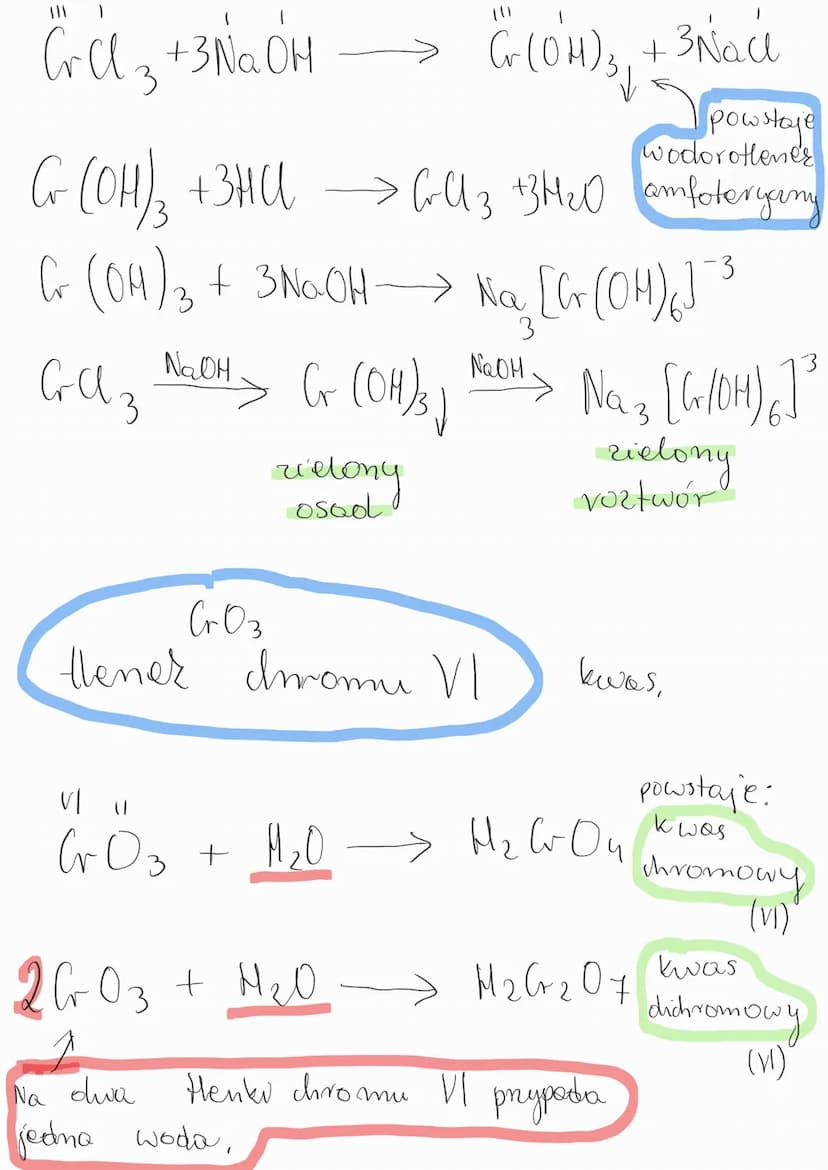 III I I I III I I I
CrCl₃ + 3NaOH ⟶ Cr(OH)₃↓ + 3NaCl
powstaje
wodorotlenek
amfoteryczny
Cr(OH)₃ + 3HCl ⟶ CrCl₃ + 3H₂O
Cr(OH)₃ + 3NaOH ⟶ Na₃[Cr(OH)₆]⁻³
NaOH NaOH
CrCl₃ ⟶ Cr(OH)₃↓ ⟶ Na₃[Cr(OH)₆]³
zielony zielony
osad roztwór
CrO₃
tlenek chromu VI kwas.
VI II
CrO₃ + H₂O ⟶ H₂CrO₄
powstaje:
kwas
chromowy
(VI)
2CrO₃ + H₂O ⟶ H₂Cr₂O₇
kwas
dichromowy
(VI)
Na dwa tlenki chromu VI przypada
jedna woda.